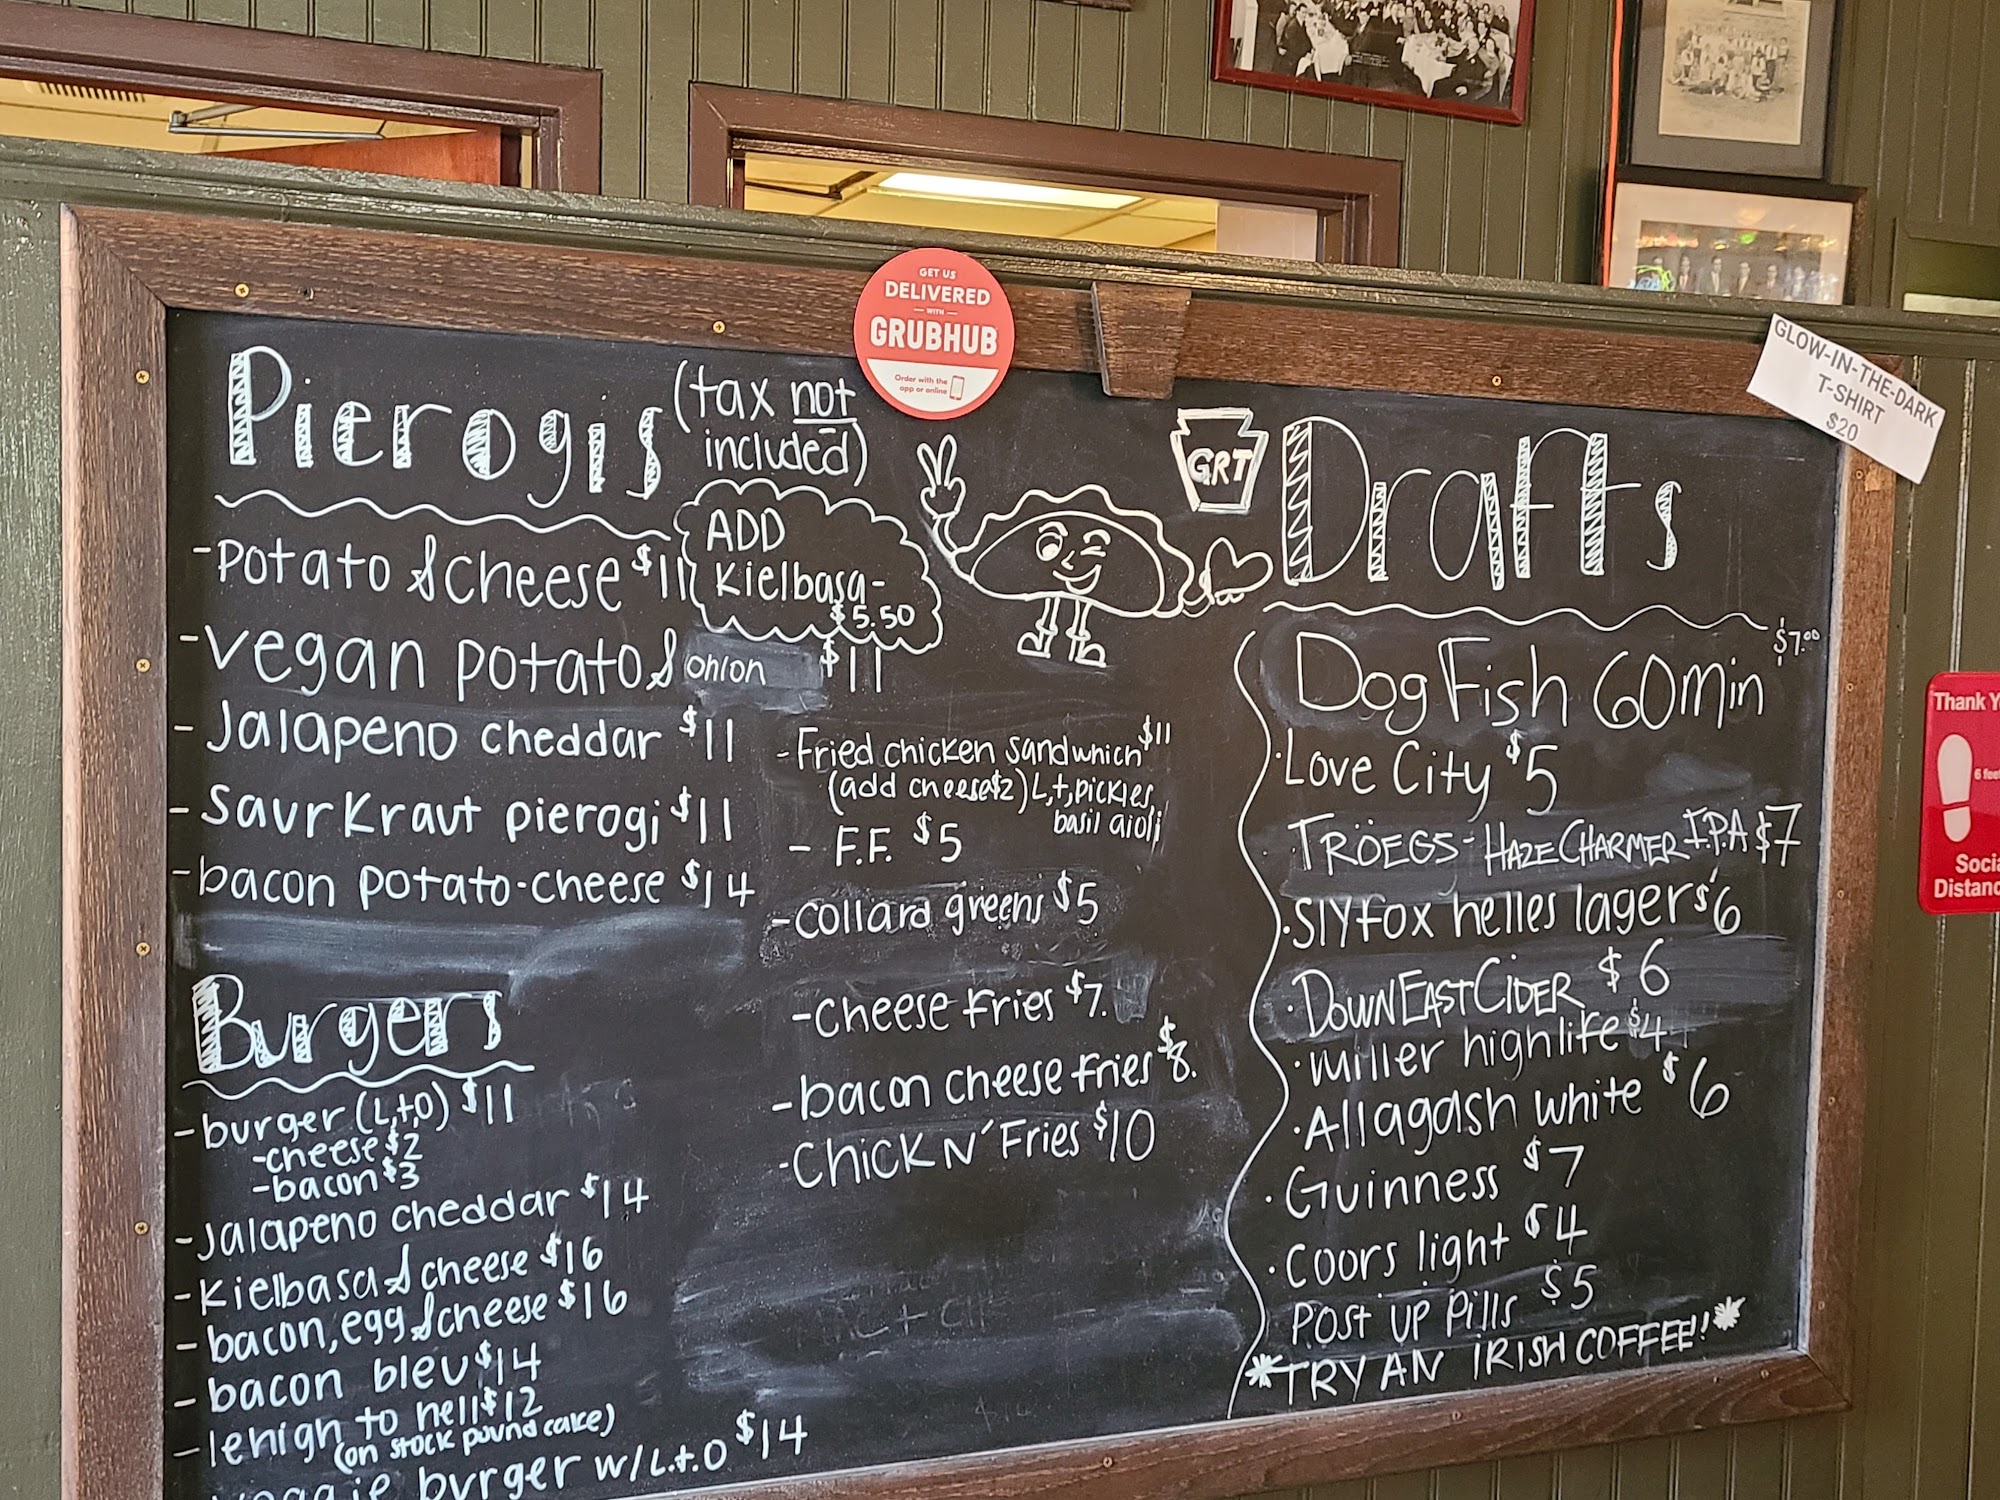 GET US
DELIVERED
WITH
GRUBHUB
Order with the
app or online
GLOW-IN-THE-DARK
T-SHIRT
$20
Pierogis
(tax not
included)
ADD
Kielbasa-
$5.50
-potato & cheese $11
-vegan potato & onion $11
-Jalapeno cheddar $11
-saurkraut pierogi $11
-bacon potato-cheese $14
Burgers
-burger (L,t,O) $11
-cheese $2
-bacon $3
-Jalapeno cheddar $14
-Kielbasa & cheese $16
-bacon, egg & cheese $16
-bacon bleu $14
-lehigh to hell $12
(on stock pound cake)
veggie burger w/ L.t.O $14
-Fried chicken sandwhich $11
(add cheese $2) L,t,pickles,
basil aioli
- F.F. $5
-collard greens $5
-cheese fries $7.
-bacon cheese fries $8.
-Chick N' Fries $10
GRT
Drafts
DogFish 60min $7.00
·Love City $5
·TRÖEGS-HAZE CHARMER I.P.A $7
·Slyfox helles lager $6
·DOWNEAST CIDER $6
·miller highlife $4
·Allagash white $6
·Guinness $7
·coors light $4
post up pills $5
*TRY AN IRISH COFFEE!!*
Thank
6 feet